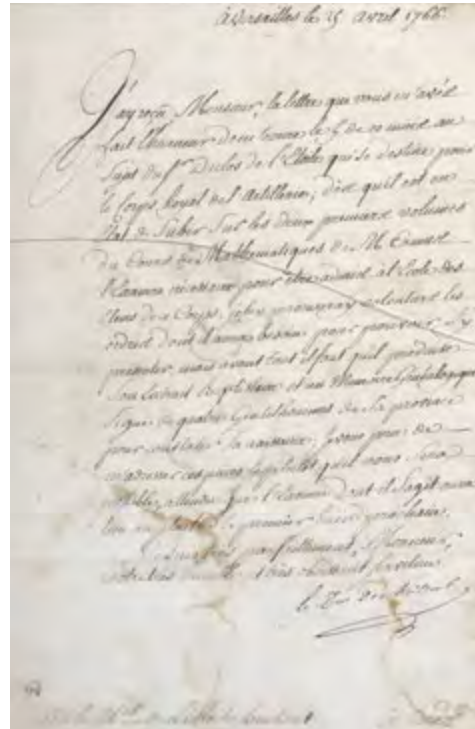 à Versailles le 25 avril 1766.
J'ay reçu, Monsieur, la lettre que vous m'avés
fait l'honneur de m'ecrire le 5 de ce mois au
Sujet du Sr. Duclos de l'Etoile qui se destine pour
le Corps Royal de l'Artillerie; dès qu'il est en
état de Subir Sur les deux premiers volumes
du Cours de Mathématiques de M. Camus
l'Examen necessaire pour être admis à l'Ecole des
Eleves de ce Corps, je luy procureray volontiers les
ordres dont il aura besoin pour pouvoir s'y
presenter, mais avant tout il faut qu'il produise
Son Extrait Baptistaire et un Memoire Genealogique
Signé de quatre Gentilshommes de Sa province
pour constater Sa naissance; je vous prie de
m'adresser ces pieces le plustôt qu'il vous Sera
possible, attendu que l'Examen dont il s'agit aura
lieu au premier prochain.
Je suis très parfaitement, Monsieur,
votre très humble et très obéissant Serviteur
le Duc de